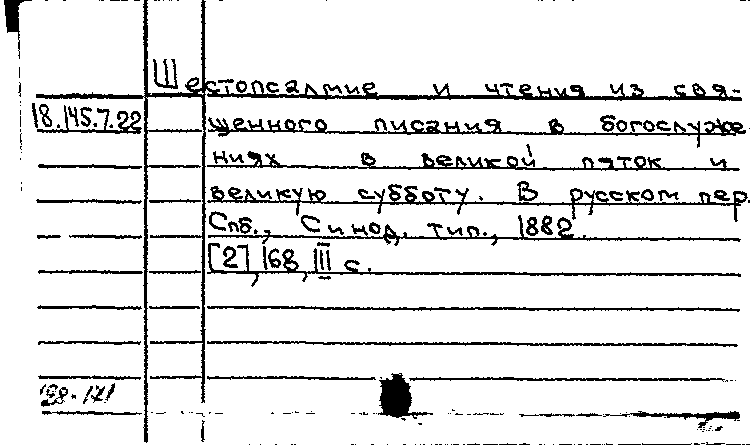 Шестопсалмие и чтения из свя-
18.145.7.22 щенного писания в богослуже
ниях в великой пяток и
великую субботу. В русском пер.
Спб., Синод. тип., 1882.
[2], 168, III с.